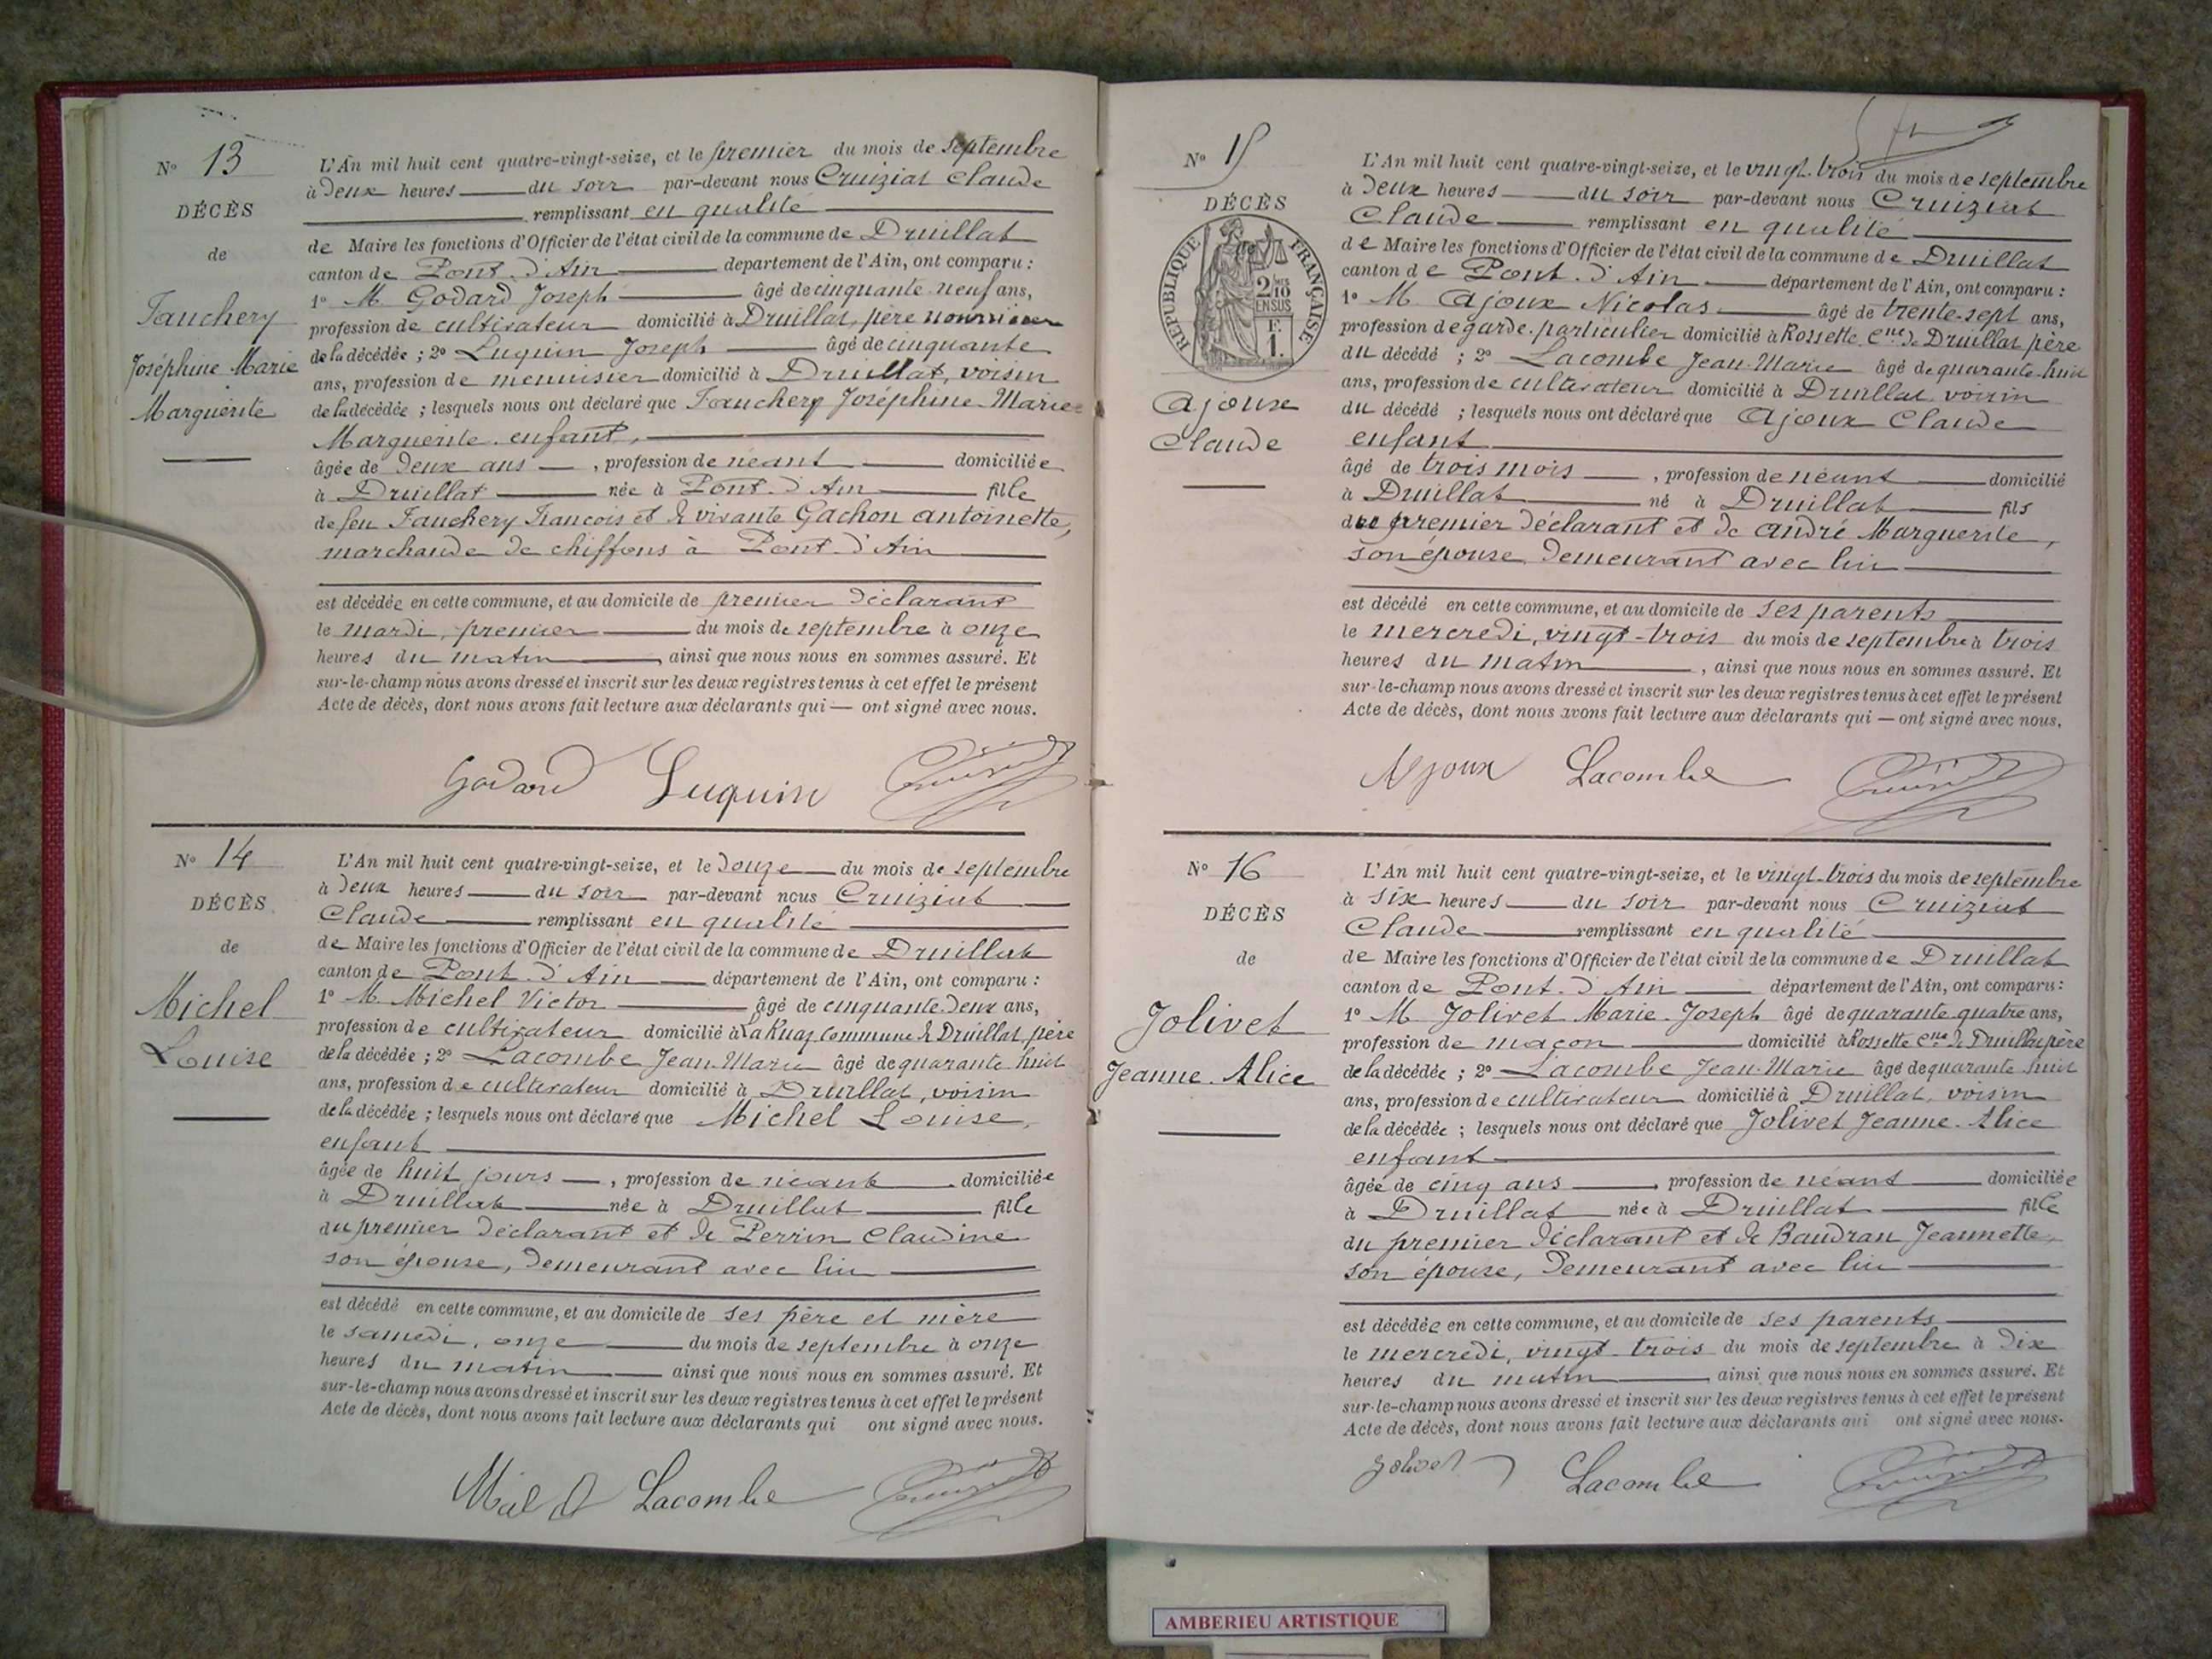 N° 13
DÉCÈS
de
Fauchery
Joséphine Marie
Marguerite
L'An mil huit cent quatre-vingt-seize, et le premier du mois de septembre
à deux heures du soir par-devant nous Cruiziat Claude
remplissant en qualité
de Maire les fonctions d'Officier de l'état civil de la commune de Druillat
canton de Pont-d'Ain departement de l'Ain, ont comparu :
1° M. Godard Joseph âgé de cinquante-neuf ans,
profession de cultivateur domicilié à Druillat, père nourricier
de la décédée ; 2° Luquin Joseph âgé de cinquante
ans, profession de menuisier domicilié à Druillat, voisin
de la décédée ; lesquels nous ont déclaré que Fauchery Joséphine-Marie-
Marguerite, enfant,
âgée de deux ans , profession de néant domiciliée
à Druillat née à Pont-d'Ain fille
de feu Fauchery Francois et de vivante Gachon antoinette,
marchande de chiffons à Pont-d'Ain
est décédée en cette commune, et au domicile de premier déclarant
le mardi, premier du mois de septembre à onze
heures du matin , ainsi que nous nous en sommes assuré. Et
sur-le-champ nous avons dressé et inscrit sur les deux registres tenus à cet effet le présent
Acte de décès, dont nous avons fait lecture aux déclarants qui — ont signé avec nous.
Godard Luquin
N° 14
DÉCÈS
de
Michel
Louise
L'An mil huit cent quatre-vingt-seize, et le douze du mois de septembre
à deux heures du soir par-devant nous Cruiziat
Claude remplissant en qualité
de Maire les fonctions d'Officier de l'état civil de la commune de Druillat
canton de Pont-d'Ain département de l'Ain, ont comparu :
1° M. Michel Victor âgé de cinquante-deux ans,
profession de cultivateur domicilié à La Ruaz commune de Druillat, père
de la décédée ; 2° Lacombe Jean-Marie âgé de quarante-huit
ans, profession de cultivateur domicilié à Druillat, voisin
de la décédée ; lesquels nous ont déclaré que Michel Louise,
enfant
âgée de huit jours , profession de néant domiciliée
à Druillat née à Druillat fille
du premier déclarant et de Perrin Claudine
son épouse, demeurant avec lui
est décédé en cette commune, et au domicile de ses père et mère
le samedi, onze du mois de septembre à onze
heures du matin ainsi que nous nous en sommes assuré. Et
sur-le-champ nous avons dressé et inscrit sur les deux registres tenus à cet effet le présent
Acte de décès, dont nous avons fait lecture aux déclarants qui ont signé avec nous.
Lacombe
N° 15
DÉCÈS
RÉPUBLIQUE FRANÇAISE
2/10
EN SUS
F.
1.
Ajoux
Claude
L'An mil huit cent quatre-vingt-seize, et le vingt-trois du mois de septembre
à deux heures du soir par-devant nous Cruiziat
Claude remplissant en qualité
de Maire les fonctions d'Officier de l'état civil de la commune de Druillat
canton de Pont-d'Ain département de l'Ain, ont comparu :
1° M. Ajoux Nicolas âgé de trente-sept ans,
profession de garde-particulier domicilié à Rossette, Cne de Druillat père
du décédé ; 2° Lacombe Jean-Marie âgé de quarante-huit
ans, profession de cultivateur domicilié à Druillat, voisin
du décédé ; lesquels nous ont déclaré que Ajoux Claude
enfant
âgé de trois mois , profession de néant domicilié
à Druillat né à Druillat fils
du premier déclarant et de André Marguerite,
son épouse, demeurant avec lui
est décédé en cette commune, et au domicile de ses parents
le mercredi, vingt-trois du mois de septembre à trois
heures du matin , ainsi que nous nous en sommes assuré. Et
sur-le-champ nous avons dressé et inscrit sur les deux registres tenus à cet effet le présent
Acte de décès, dont nous avons fait lecture aux déclarants qui — ont signé avec nous.
Ajoux Lacombe
N° 16
DÉCÈS
de
Jolivet
Jeanne-Alice
L'An mil huit cent quatre-vingt-seize, et le vingt-trois du mois de septembre
à six heures du soir par-devant nous Cruiziat
Claude remplissant en qualité
de Maire les fonctions d'Officier de l'état civil de la commune de Druillat
canton de Pont-d'Ain département de l'Ain, ont comparu :
1° M. Jolivet Marie-Joseph âgé de quarante quatre ans,
profession de maçon domicilié à Rossette Cne de Druillat père
de la décédée ; 2° Lacombe Jean-Marie âgé de quarante-huit
ans, profession de cultivateur domicilié à Druillat, voisin
de la décédée ; lesquels nous ont déclaré que Jolivet Jeanne-Alice
enfant
âgée de cinq ans , profession de néant domiciliée
à Druillat née à Druillat fille
du premier déclarant et de Baudran Jeannette,
son épouse, demeurant avec lui
est décédée en cette commune, et au domicile de ses parents
le mercredi, vingt-trois du mois de septembre à dix
heures du matin , ainsi que nous nous en sommes assuré. Et
sur-le-champ nous avons dressé et inscrit sur les deux registres tenus à cet effet le présent
Acte de décès, dont nous avons fait lecture aux déclarants qui ont signé avec nous.
Jolivet Lacombe
AMBERIEU ARTISTIQUE